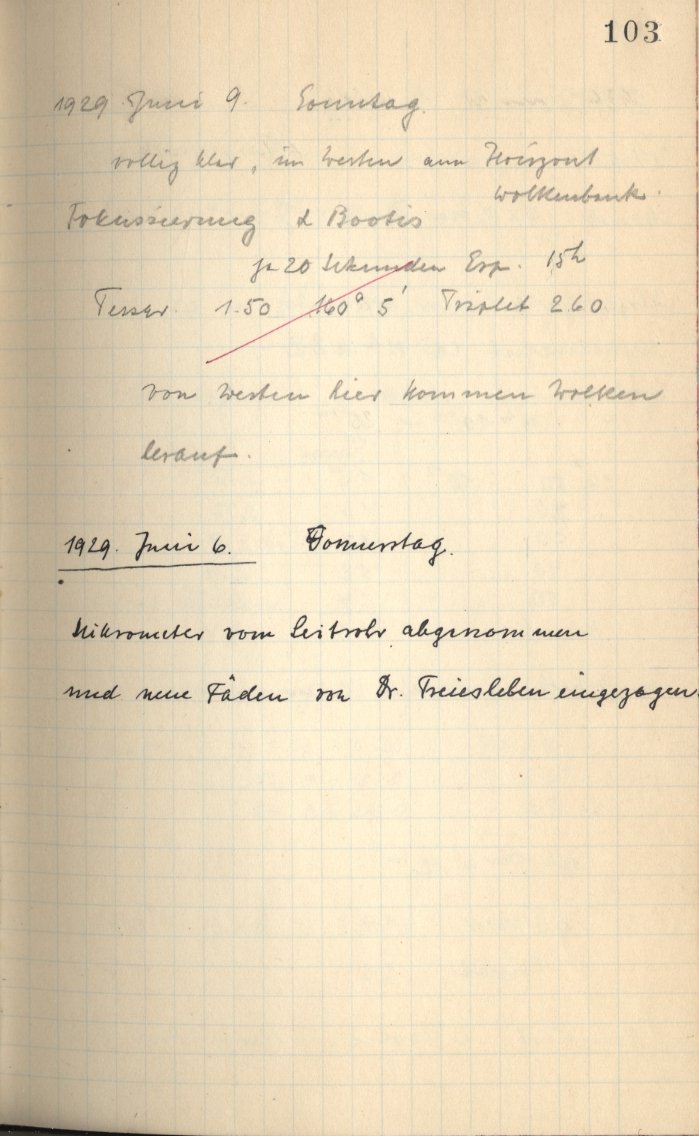 103
1929. Juni 9. Sonntag.
völlig klar, im Westen am Horizont
Wolkenbank.
Fokussierung α Bootis
je 20 Sekunden Exp. 15h
Tessar 1.50 160° 5' Triplet 2.60
von Westen hier kommen Wolken
herauf.
1929. Juni 6. Donnerstag.
Mikrometer vom Leitrohr abgenommen
und neue Fäden von Dr. Freiesleben eingezogen.